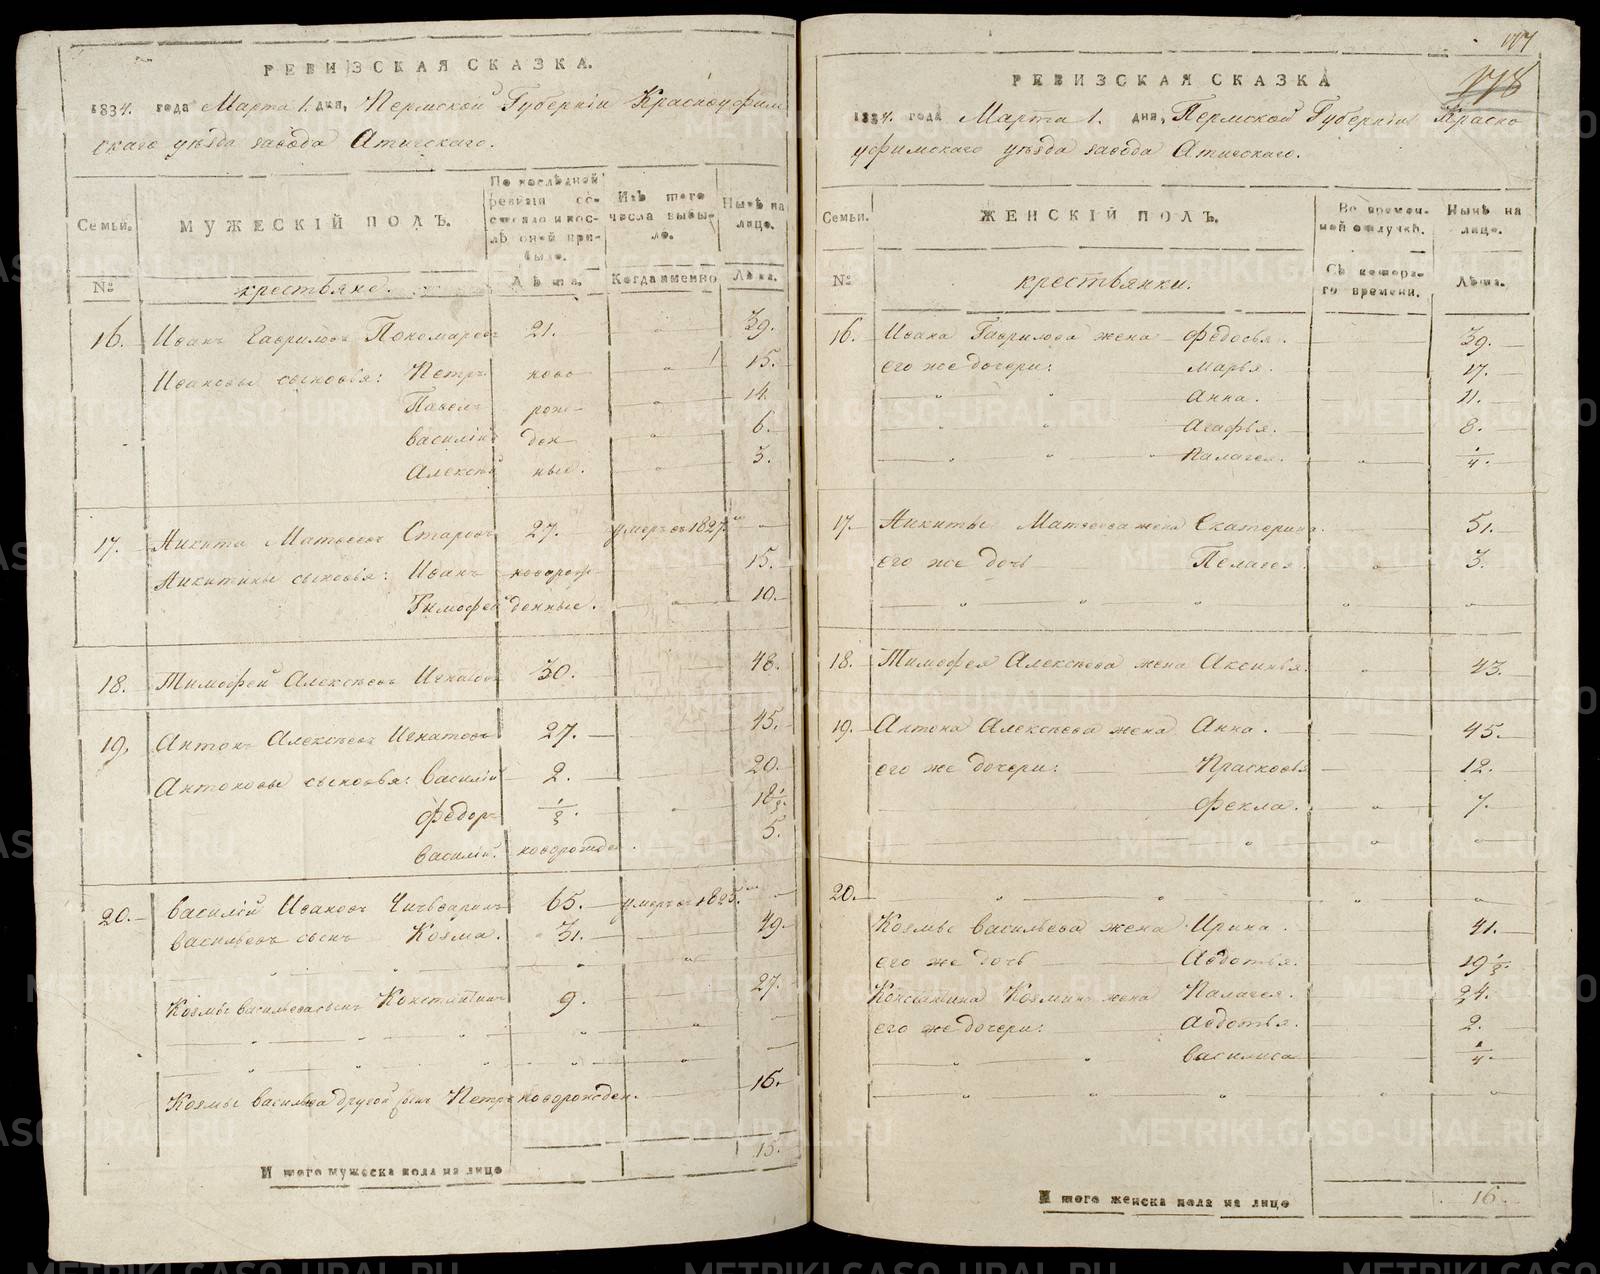 РЕВИЗСКАЯ СКАЗКА.
1834. года Марта 1. дня, Пермской Губерніи Красноуфим
скаго уѣзда завода Атигскаго.
Семьи.
МУЖЕСКІЙ ПОЛЪ.
По послѣдной ревизіи состояло и послѣ оной прибыло.
Изъ того числа выбыло.
Нынѣ на лице.
№
крестьяне.
Лѣта.
Когда именно
Лѣта.
16. Иванъ Гавриловъ Пономаревъ 21. 39.
Ивановы сыновья: Петръ ново 15.
Павелъ рож- 14.
Василій ден 6.
Алексѣй ные. 3.
17. Никита Матвеевъ Старовъ 27. умеръ въ 1827.
Никитины сыновья: Иванъ новорож- 15.
Тимофей денные. 10.
18. Тимофей Алексѣевъ Игнатовъ 30. 48.
19. Антонъ Алексѣевъ Игнатовъ 27. 45.
Антоновы сыновья: Василій 2. 20.
Федоръ 1/2. 18 1/2.
Василій. новорожден. 5.
20. Василій Ивановъ 65. умеръ въ 1825.
Васильевъ сынъ Козма. 31. 49.
Козмы Васильева сынъ Константинъ 9. 27.
Козмы Васильева другой сынъ Петръ новорожден. 16.
И того мужеска пола на лицо 15.
117
118
РЕВИЗСКАЯ СКАЗКА
1834. года Марта 1. дня, Пермской Губерніи Красно
уфимскаго уѣзда завода Атигскаго.
Семьи.
ЖЕНСКІЙ ПОЛЪ.
Во временной отлучкѣ.
Нынѣ на лице.
№
крестьянки.
Съ котораго времени.
Лѣта.
16. Ивана Гаврилова жена Федосья. 39.
его же дочери: Марья. 17.
Анна. 11.
Агафья. 8.
Палагея. 1/4.
17. Никиты Матвеева жена Екатерина. 51.
его же дочь Пелагея. 3.
18. Тимофея Алексѣева жена Аксинья. 43.
19. Антона Алексѣева жена Анна. 45.
его же дочери: Прасковья 12.
Фекла. 7.
20.
Козмы Васильева жена Ирина. 41.
его же дочь Авдотья. 19 1/2.
Константина Козмина жена Палагея. 24.
его же дочери: Авдотья. 2.
Василиса 1/4.
И того женска пола на лице 16.
METRIKI.GASO-URAL.RU